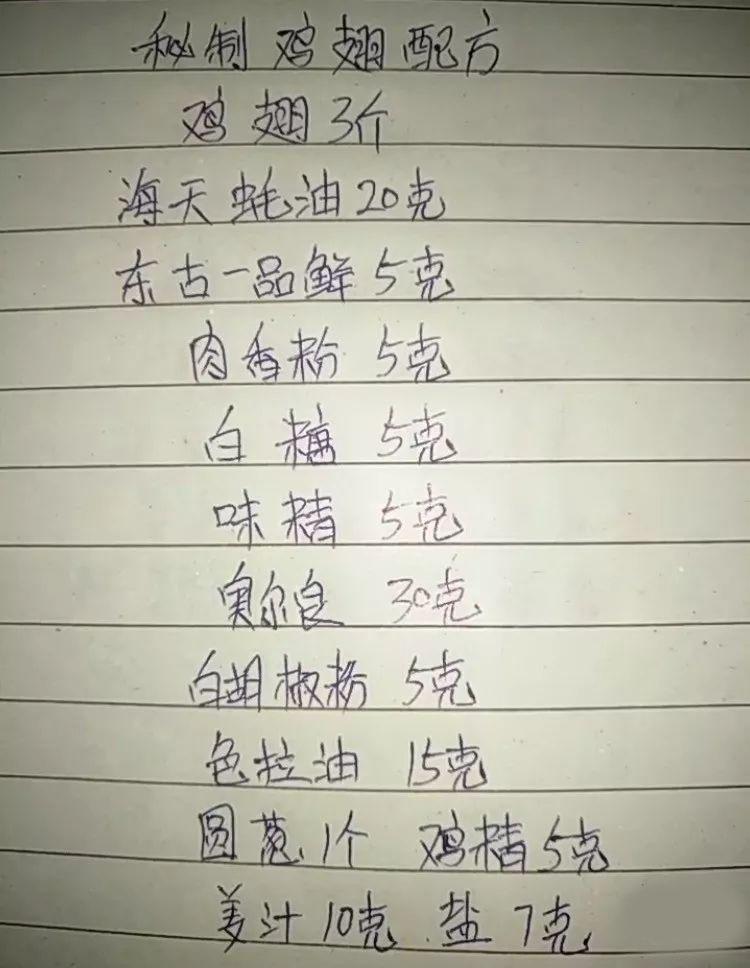 秘制鸡翅配方
鸡翅3个
海天蚝油20克
东古一品鲜5克
肉香粉 5克
白糖 5克
味精 5克
奥尔良 30克
白胡椒粉 5克
色拉油 15克
圆葱1个 鸡精5克
姜汁10克 盐7克